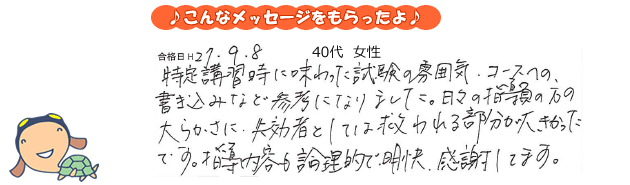 ♪こんなメッセージをもらったよ♪
合格日H27.9.8 40代 女性
特定講習時に味わった試験の雰囲気・コースへの、
書き込みなど参考になりました。日々の指導の方の
大らかさに、失効者としては救われる部分が大きかった
です。指導内容も論理的で明快、感謝してます。